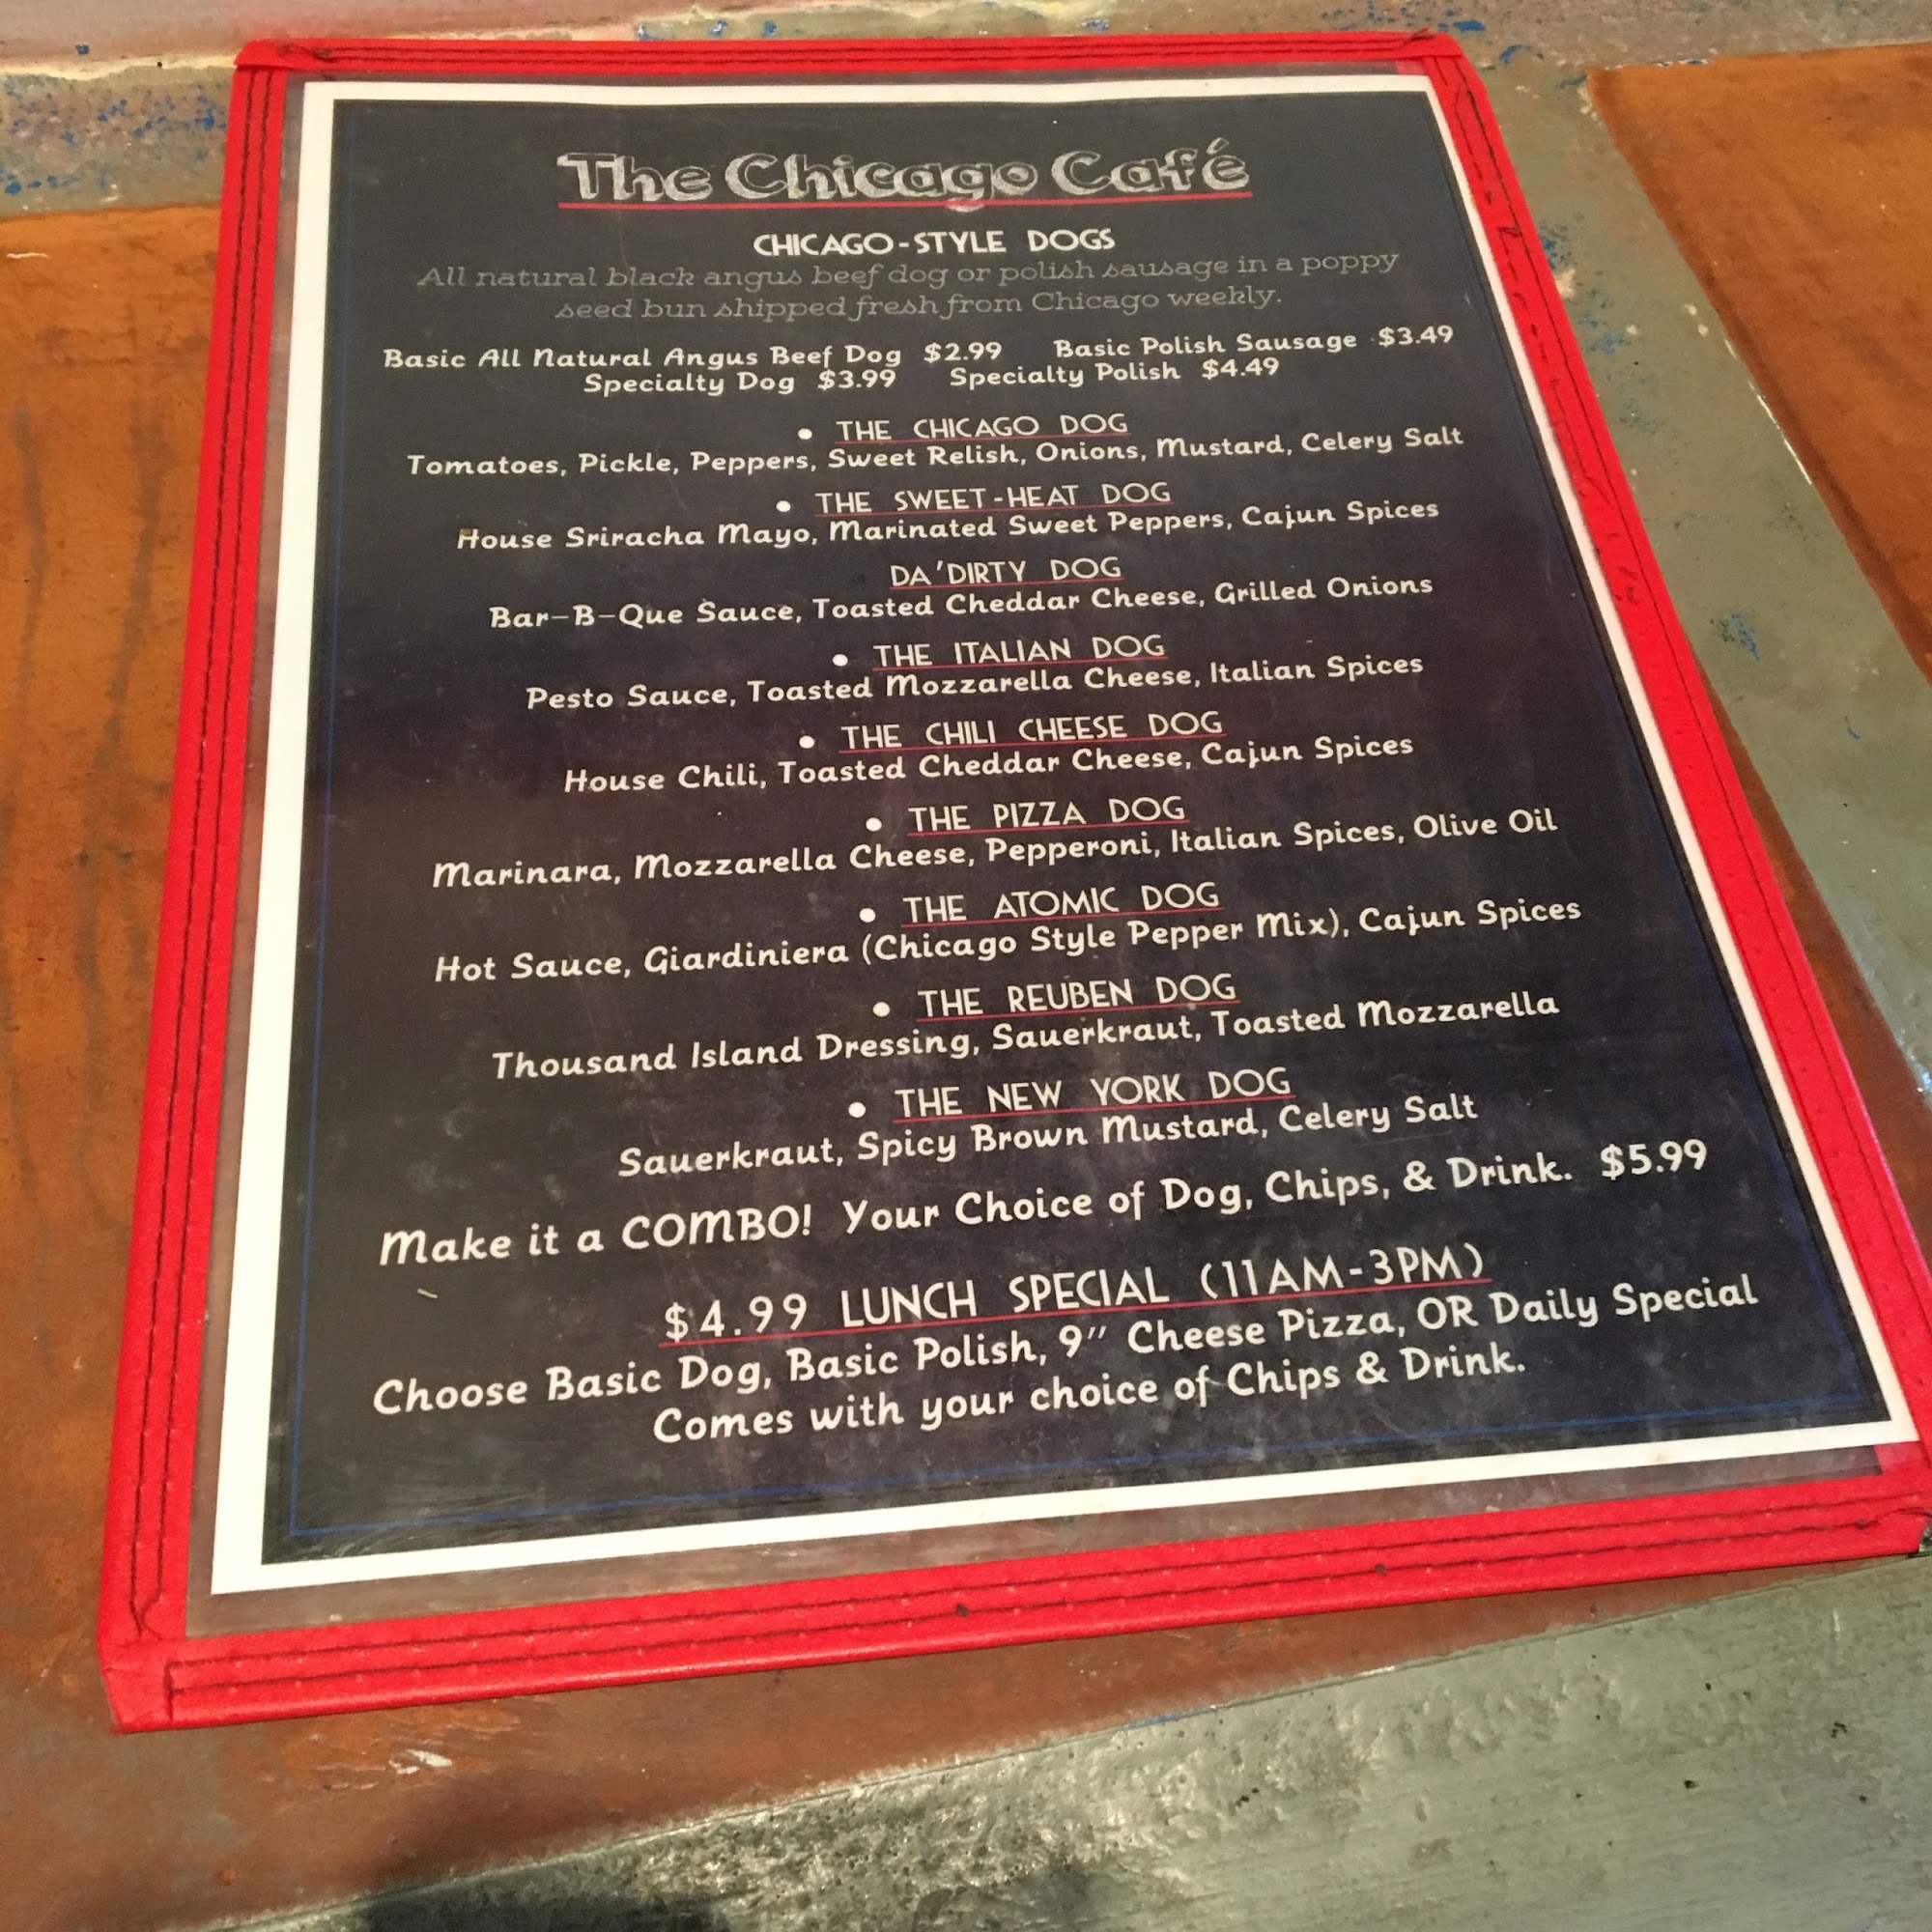 The Chicago Café
CHICAGO-STYLE DOGS
All natural black angus beef dog or polish sausage in a poppy
seed bun shipped fresh from Chicago weekly.
Basic All Natural Angus Beef Dog $2.99 Basic Polish Sausage $3.49
Specialty Dog $3.99 Specialty Polish $4.49
• THE CHICAGO DOG
Tomatoes, Pickle, Peppers, Sweet Relish, Onions, Mustard, Celery Salt
• THE SWEET-HEAT DOG
House Sriracha Mayo, Marinated Sweet Peppers, Cajun Spices
DA'DIRTY DOG
Bar-B-Que Sauce, Toasted Cheddar Cheese, Grilled Onions
• THE ITALIAN DOG
Pesto Sauce, Toasted Mozzarella Cheese, Italian Spices
• THE CHILI CHEESE DOG
House Chili, Toasted Cheddar Cheese, Cajun Spices
• THE PIZZA DOG
Marinara, Mozzarella Cheese, Pepperoni, Italian Spices, Olive Oil
• THE ATOMIC DOG
Hot Sauce, Giardiniera (Chicago Style Pepper Mix), Cajun Spices
• THE REUBEN DOG
Thousand Island Dressing, Sauerkraut, Toasted Mozzarella
• THE NEW YORK DOG
Sauerkraut, Spicy Brown Mustard, Celery Salt
Make it a COMBO! Your Choice of Dog, Chips, & Drink. $5.99
$4.99 LUNCH SPECIAL (11AM-3PM)
Choose Basic Dog, Basic Polish, 9" Cheese Pizza, OR Daily Special
Comes with your choice of Chips & Drink.